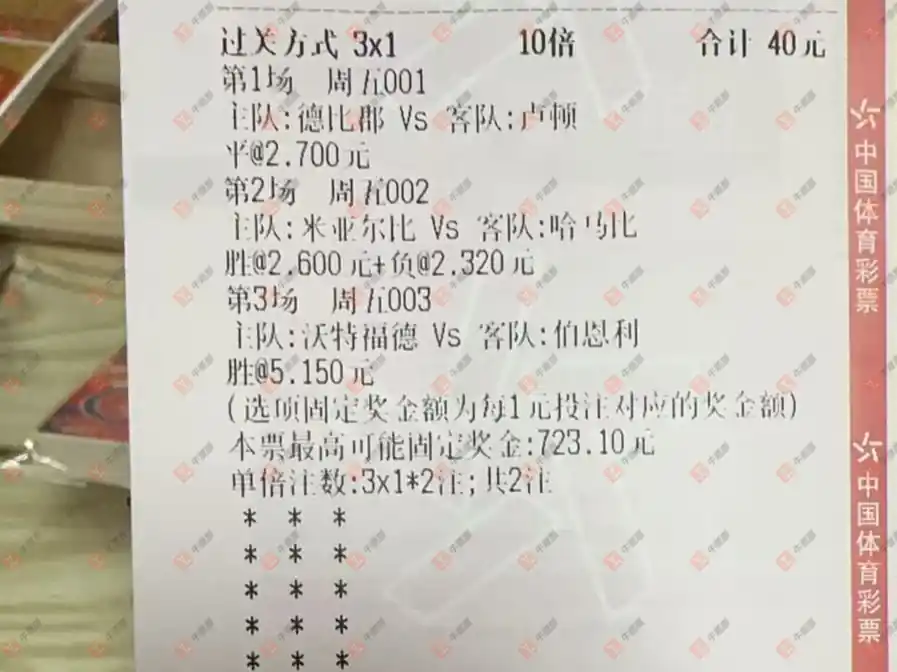 过关方式 3x1 10倍 合计 40元
第1场 周五001
主队:德比郡 Vs 客队:卢顿
平@2.700元
第2场 周五002
主队:米亚尔比 Vs 客队:哈马比
胜@2.600元+负@2.320元
第3场 周五003
主队:沃特福德 Vs 客队:伯恩利
胜@5.150元
(选项固定奖金额为每1元投注对应的奖金额)
本票最高可能固定奖金:723.10元
单倍注数:3x1*2注;共2注
* * *
* * *
* * *
* * *
* * *
中国体育彩票
中国体育彩票